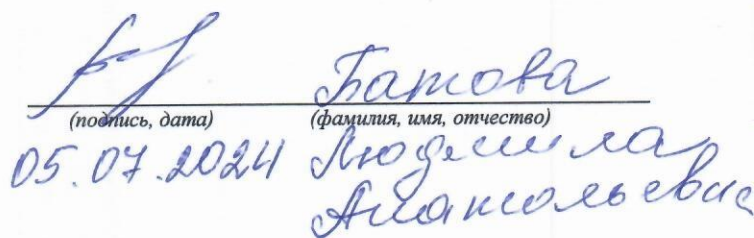 Батова
(подпись, дата) (фамилия, имя, отчество)
05.07.2024 Людмила
Анатольевна